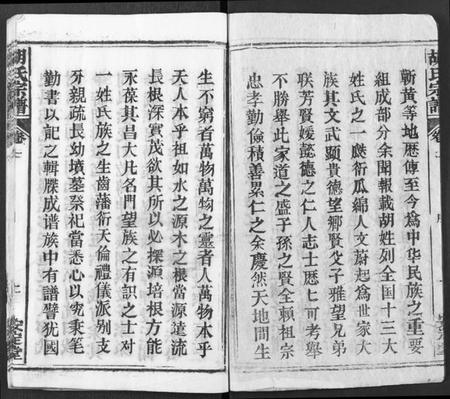 胡氏宗譜
蘄黃等地歷傳至今為中华民族之重要
組成部分余閱報載胡姓列全国十三大
姓氏之一瓞衍瓜綿人文蔚起為世家大
族其文武顕貴德望鄉賢父子雅望兄弟
联芳賢媛懿德之仁人志士歷匕可考舉
不勝舉此家道之盛子孫之賢全頼祖宗
忠孝勤儉積善累仁之余慶然天地間生
生不窮者萬物萬物之靈者人萬物本乎
天人本乎祖如水之源木之根當源遠流
長根深實茂欲其所以必探源培根方能
永葆其昌大凡名門望族之有識之士对
一姓氏族之生齒蕃衍天倫禮儀派别支
分親疏長幼墳墓祭祀當悉心以究秉筆
勤書以記之輯縢成谱族中有譜譬犹國
胡氏宗譜
卷
上
安定堂